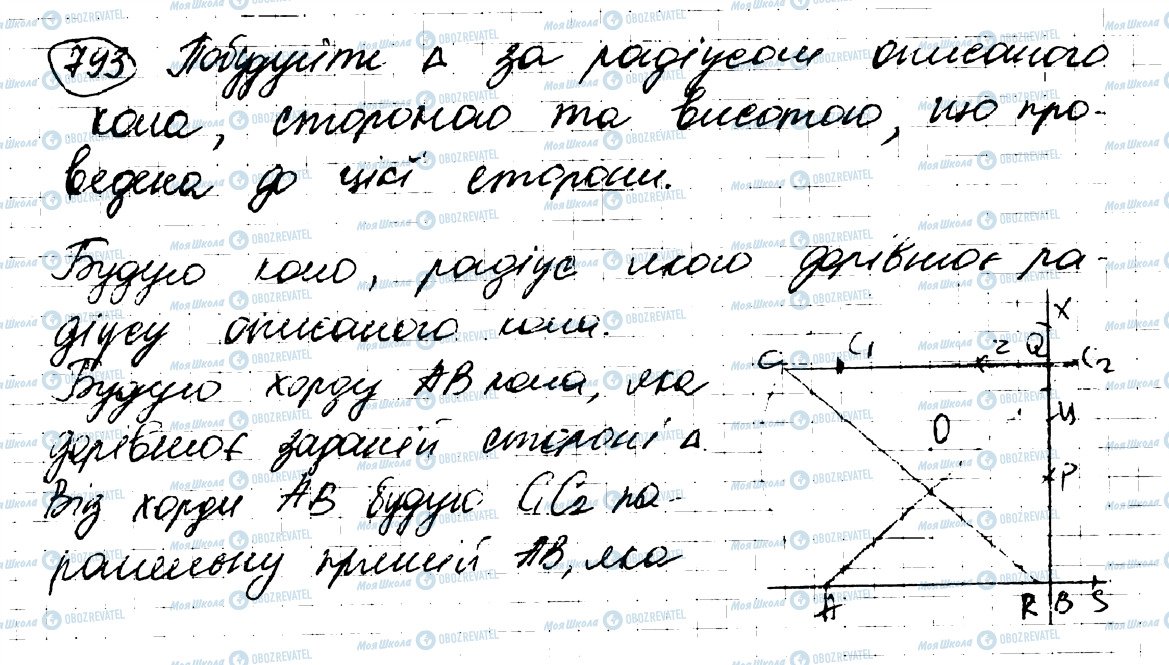 793 Побудуйте Δ за радіусом описаного
кола, стороною та висотою, що про-
ведена до цієї сторони.
Будую коло, радіус якого дорівнює ра-
діусу описаного кола.
Будую хорду АВ кола, яка
дорівнює заданій стороні Δ.
Від хорди АВ будую
ралельну прямій АВ, яка
X
C C1 Q C2
O
P
A R B S